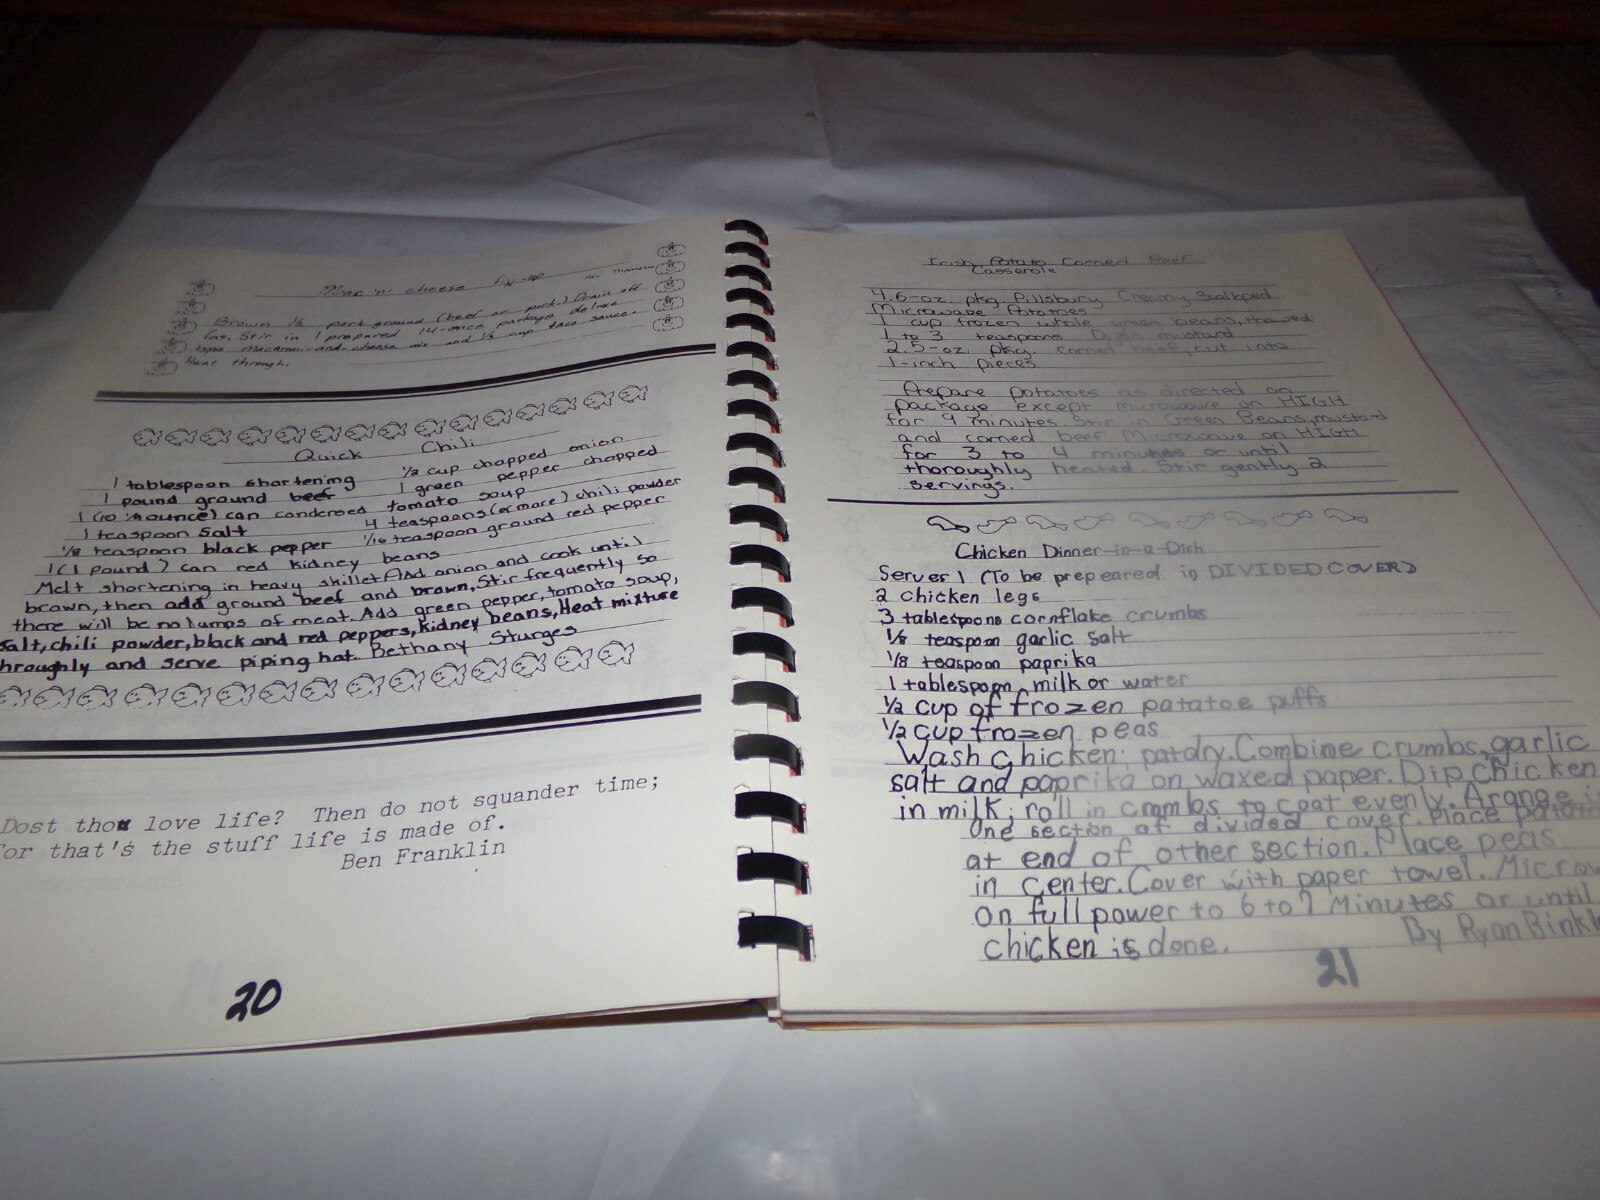 Mac 'n' cheese fix-up
Brown 1/2 pork ground (beef or pork.) Drain off
fat. Stir in 1 prepared 14-ounce package deluxe
type macaroni-and-cheese mix and 1/3 cup taco sauce.
Heat through.
Quick Chili
1 tablespoon shortening 1/2 cup chopped onion
1 pound ground beef 1 green pepper chopped
1 (10 ounce) can condensed tomato soup
1 teaspoon salt 4 teaspoons (or more) chili powder
1/8 teaspoon black pepper 1/16 teaspoon ground red pepper
1 (1 pound) can red kidney beans
Melt shortening in heavy skillet Add onion and cook until
brown, then add ground beef and brown, Stir frequently so
there will be no lumps of meat. Add green pepper, tomato soup,
salt, chili powder, black and red peppers, kidney beans, Heat mixture
hroughly and serve piping hot. Bethany Sturges
Dost thou love life? Then do not squander time;
for that's the stuff life is made of.
Ben Franklin
20
Irish Potato Corned Beef
Casserole
4.6-oz. pkg. Pillsbury Creamy Scalloped
Microwave Potatoes
1 cup frozen whole green beans, thawed
1 to 3 teaspoons Dijon mustard
2.5-oz. pkg. corned beef, cut into
1-inch pieces
Prepare potatoes as directed on
package except microwave on HIGH
for 9 minutes. Stir in Green Beans, mustard
and corned beef Microwave on HIGH
for 3 to 4 minutes or until
thoroughly heated. Stir gently 2
servings.
Chicken Dinner-in-a-Dish
Server 1 (To be prepeared in DIVIDED COVER)
2 chicken legs
3 tablespoons cornflake crumbs
1/8 teaspoon garlic salt
1/8 teaspoon paprika
1 tablespoon milk or water
1/2 cup of frozen patatoe puffs
1/2 cup frozen peas
Wash chicken; pat dry. Combine crumbs, garlic
salt and paprika on waxed paper. Dip chicken
in milk; roll in crombs to coat evenly. Arange in
One section of divided cover. Place patato
at end of other section. Place peas
in center. Cover with paper towel. Microw
on full power to 6 to 7 Minutes or until
chicken is done. By Ryan Binkl
21